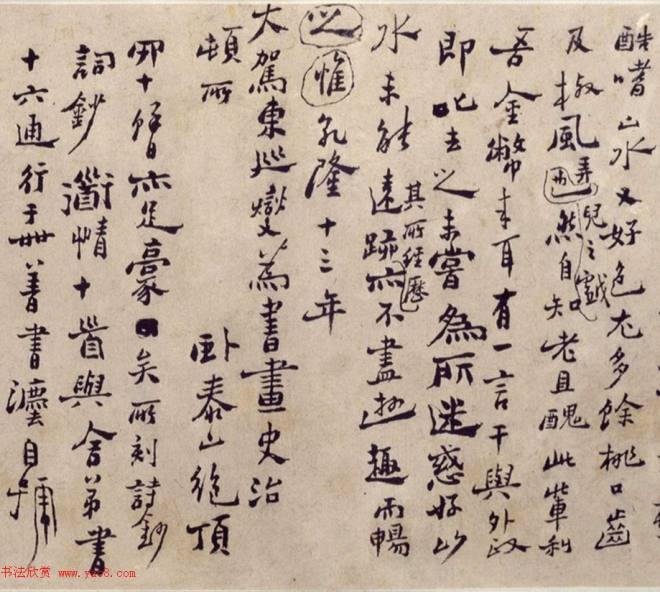 酷嗜山水又好色尤多餘桃口齒
及椒風弄兒之戲然自知老且醜此輩利
吾金幣來耳有一言干與外政
即叱去之未嘗為所迷惑好山
水未能遠跡其所經歷亦不盡遊趣而暢
之惟乾隆十三年
大駕東巡燮為書畫史治
頓所 臥泰山絕頂
四十餘日亦足豪矣所刻詩鈔
詞鈔道情十首與舍弟書
十六通行于世善書灋自號
书法欣赏 www.yac8.com